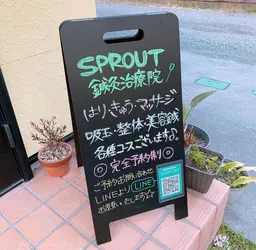 SPROUT
鍼灸治療院
はり・きゅう・マッサージ
吸玉・整体・美容鍼
各種コースございます♪
◎完全予約制◎
ご予約・お問い合わせ
LINEより LINE
お願いいたします☆